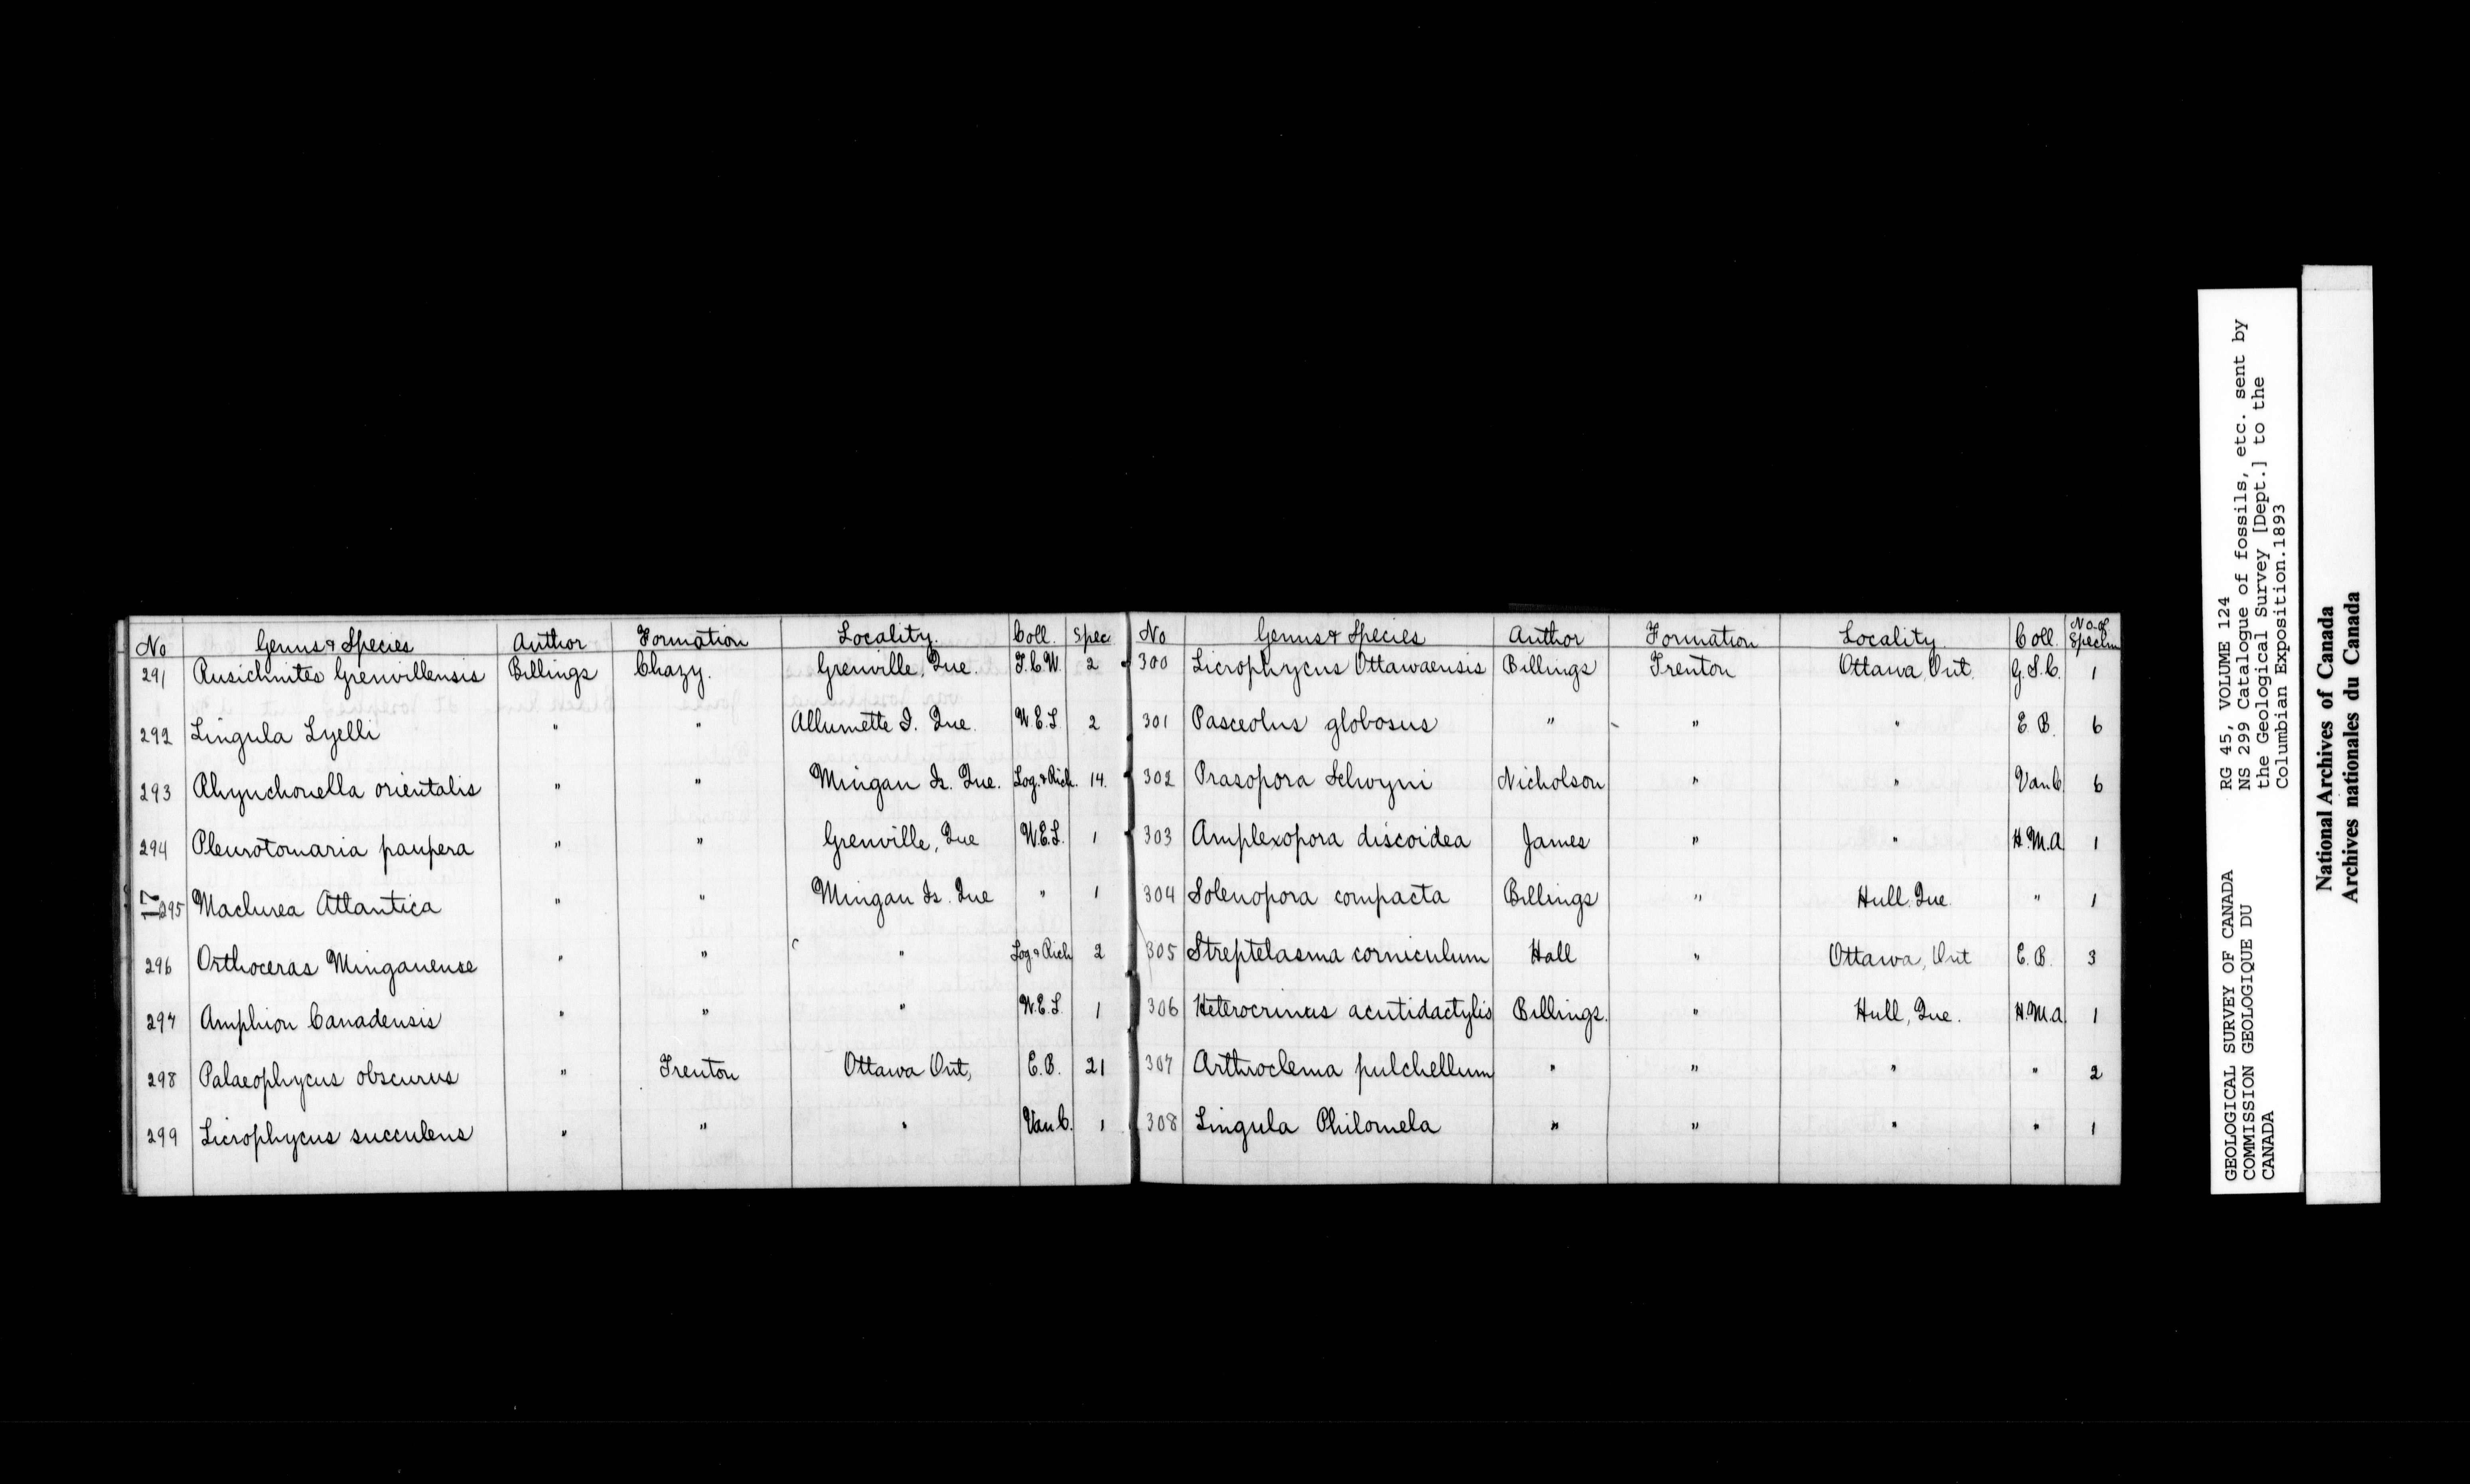 No Genus & Species Author Formation Locality. Coll. Spec
291 Rusichnites Grenvillensis Billings Chazy. Grenville, Que. T.C.W. 2
292 Lingula Lyelli " " Allumette I. Que. W.E.L. 2
293 Rhynchonella orientalis " " Mingan Is. Que. Log. & Rich. 14.
294 Pleurotomaria paupera " " Grenville, Que W.E.L. 1
17 295 Maclurea Atlantica " " Mingan Is. Que " 1
296 Orthoceras Minganense " " " Log & Rich 2
297 Amphion Canadensis " " " W.E.L. 1
298 Palaeophycus obscurus " Trenton Ottawa Ont, E.B. 21
299 Licrophycus succulens " " " Van C. 1
No Genus & Species Author Formation Locality. Coll. No. of Specim
300 Licrophycus Ottawaensis Billings Trenton Ottawa, Ont. G.S.C. 1
301 Pasceolus globosus " " " E.B. 6
302 Prasopora Selwyni Nicholson " " Van C. 6
303 Amplexopora discoidea James " " H.M.A 1
304 Solenopora compacta Billings " Hull. Que " 1
305 Streptelasma corniculum Hall " Ottawa, Ont E.B. 3
306 Heterocrinus acutidactylis Billings. " Hull, Que. H.M.A. 1
307 Arthroclema pulchellum " " " " 2
308 Lingula Philomela " " " " 1
GEOLOGICAL SURVEY OF CANADA RG 45, VOLUME 124
COMMISSION GEOLOGIQUE DU NS 299 Catalogue of fossils, etc. sent by
CANADA the Geological Survey [Dept.] to the
Columbian Exposition.1893
National Archives of Canada
Archives nationales du Canada